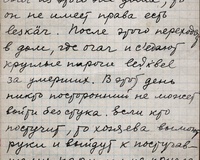 он не имеет права есть
lesxár. После этого переходят
в дом, где очаг и съедают
круглые пироги
за умерших. В этот день
никто посторонний не может
войти без стука. Если кто
постучит, то хозяева вымоют
руки и выйдут к постучав-